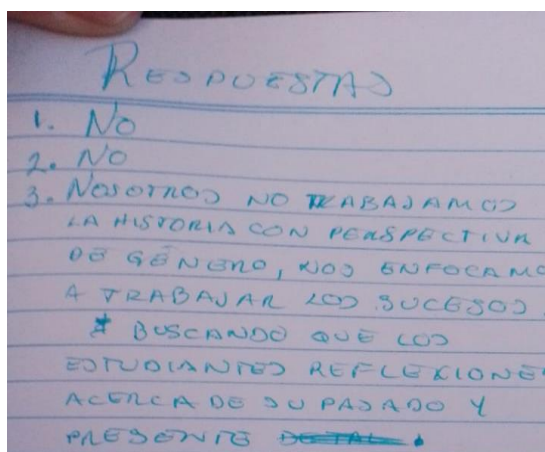 RESPUESTAS
1. NO
2. NO
3. NOSOTROS NO TRABAJAMOS
LA HISTORIA CON PERSPECTIVA
DE GÉNERO, NOS ENFOCAMO
A TRABAJAR LOS SUCESOS
BUSCANDO QUE LOS
ESTUDIANTES REFLEXIONE
ACERCA DE SU PASADO Y
PRESENTE